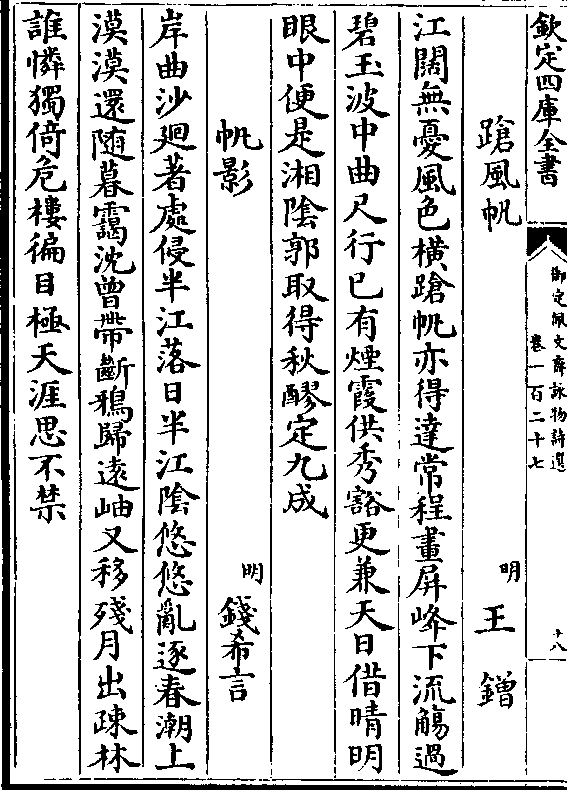 欽定四庫全書
御定佩文齋詠物詩選
卷一百二十七
十八
蹌風帆
明
王鏳
江闊無憂風色横蹌帆亦得達常程畫屏峰下流觴過
碧玉波中曲尺行已有煙霞供秀豁更兼天日借晴明
眼中便是湘陰郭取得秋醪定九成
帆影
明
錢希言
岸曲沙廻著處侵半江落日半江陰悠悠亂逐春潮上
漠漠還随暮靄沈曾帶斷鴉歸遠岫又移殘月出疎林
誰憐獨倚危樓徧目極天涯思不禁